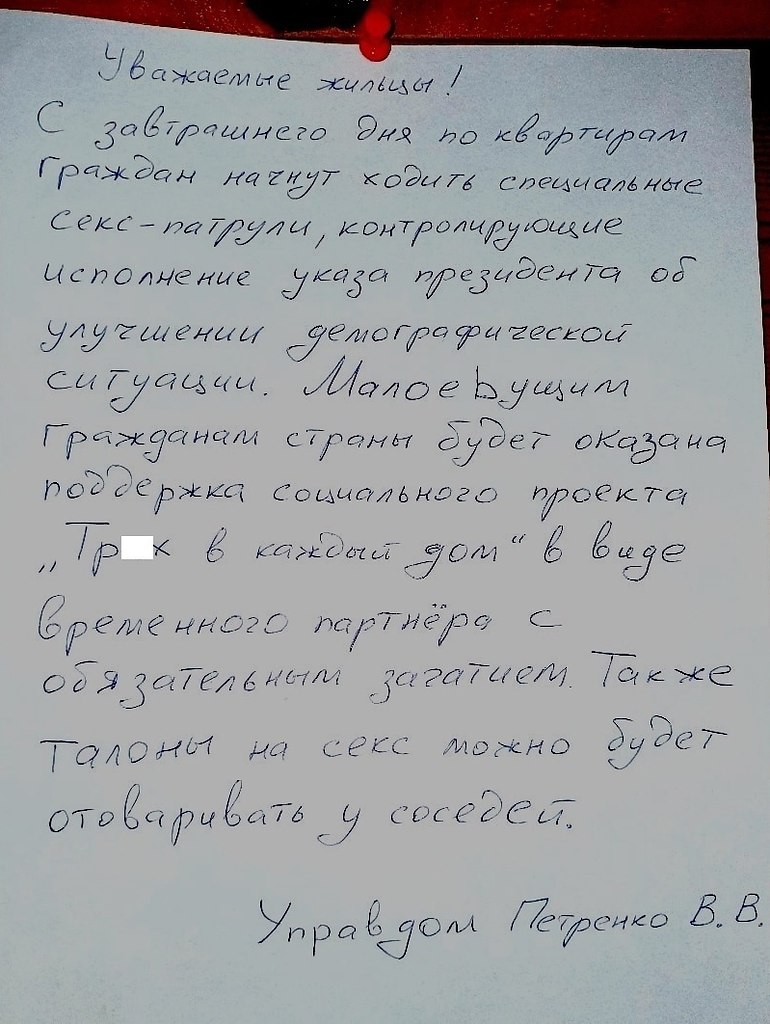 Уважаемые жильцы!
С завтрашнего дня по квартирам
граждан начнут ходить специальные
секс-патрули, контролирующие
исполнение указа президента об
улучшении демографической
ситуации. Малоеbущим
гражданам страны будет оказана
поддержка социального проекта
„Тр х в каждый дом“ в виде
временного партнёра с
обязательным зачатием. Также
талоны на секс можно будет
отоваривать у соседей.
Управдом Петренко В. В.